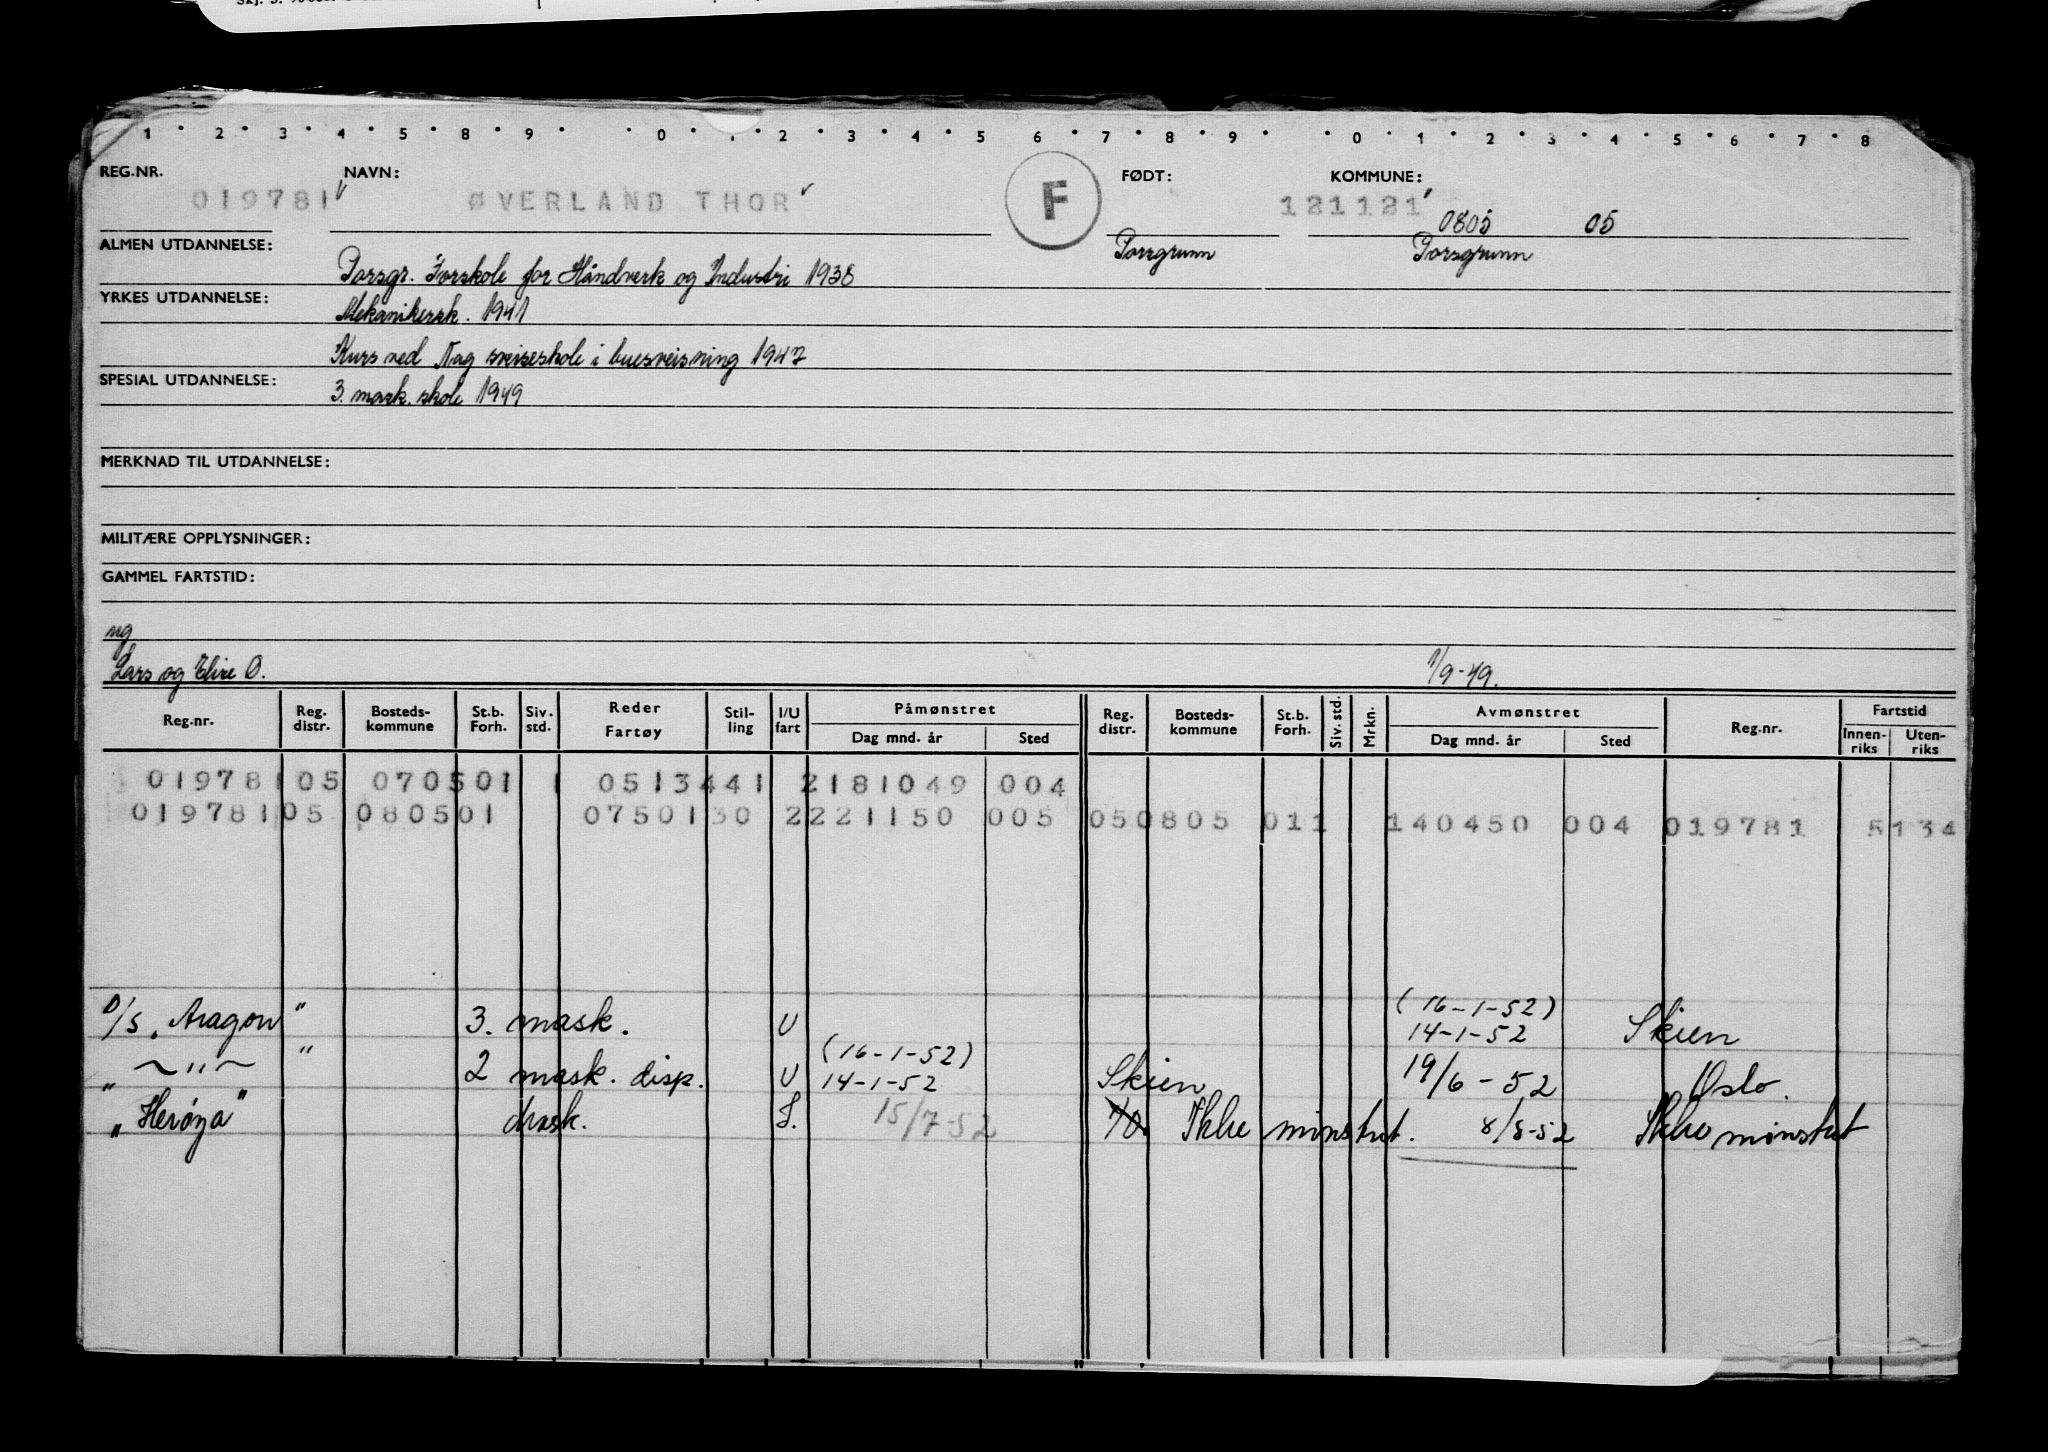 1 2 3 4 5 8 9 0 . 2 3 4 5 6 7 8 9 0 1 2 3 4 5 6 7 8
REG.NR. NAVN: F FØDT: KOMMUNE:
019781 ØVERLAND THOR 121121 0805 05
ALMEN UTDANNELSE: Porsgrunn Porsgrunn
Porsgr. Forskole for Håndverk og Industri 1938
YRKES UTDANNELSE: Mekanikersk. 1941
Kurs ved Nag sveiseskole i buesveisning 1947
SPESIAL UTDANNELSE: 3. mask. skole 1949
MERKNAD TIL UTDANNELSE:
MILITÆRE OPPLYSNINGER:
GAMMEL FARTSTID:
ug
Lars og Elise Ø. 1/9-49.
Reg.nr. Reg. distr. Bosteds-kommune St.b. Forh. Siv. std. Reder Fartøy Stil-ling I/U fart Påmønstret Dag mnd. år Sted Reg. distr. Bosteds-kommune St.b. Forh. Siv. std. Mrkn. Avmønstret Dag mnd. år Sted Reg.nr. Fartstid Innen-riks Uten-riks
019781 05 070501 1 0513441 2181049 004
019781 05 080501 0750130 2221150 005 050805 011 140450 004 019781 5134
D/S "Aragon " 3. mask. U (16-1-52) 14-1-52 Skien
" ~"~ " 2 mask. disp. U (16-1-52) 14-1-52 Skien 19/6-52 Oslo.
" Herøya" Mask. I. 15/7-52 Ikke mönstret. 8/8-52 Ikke mönstret